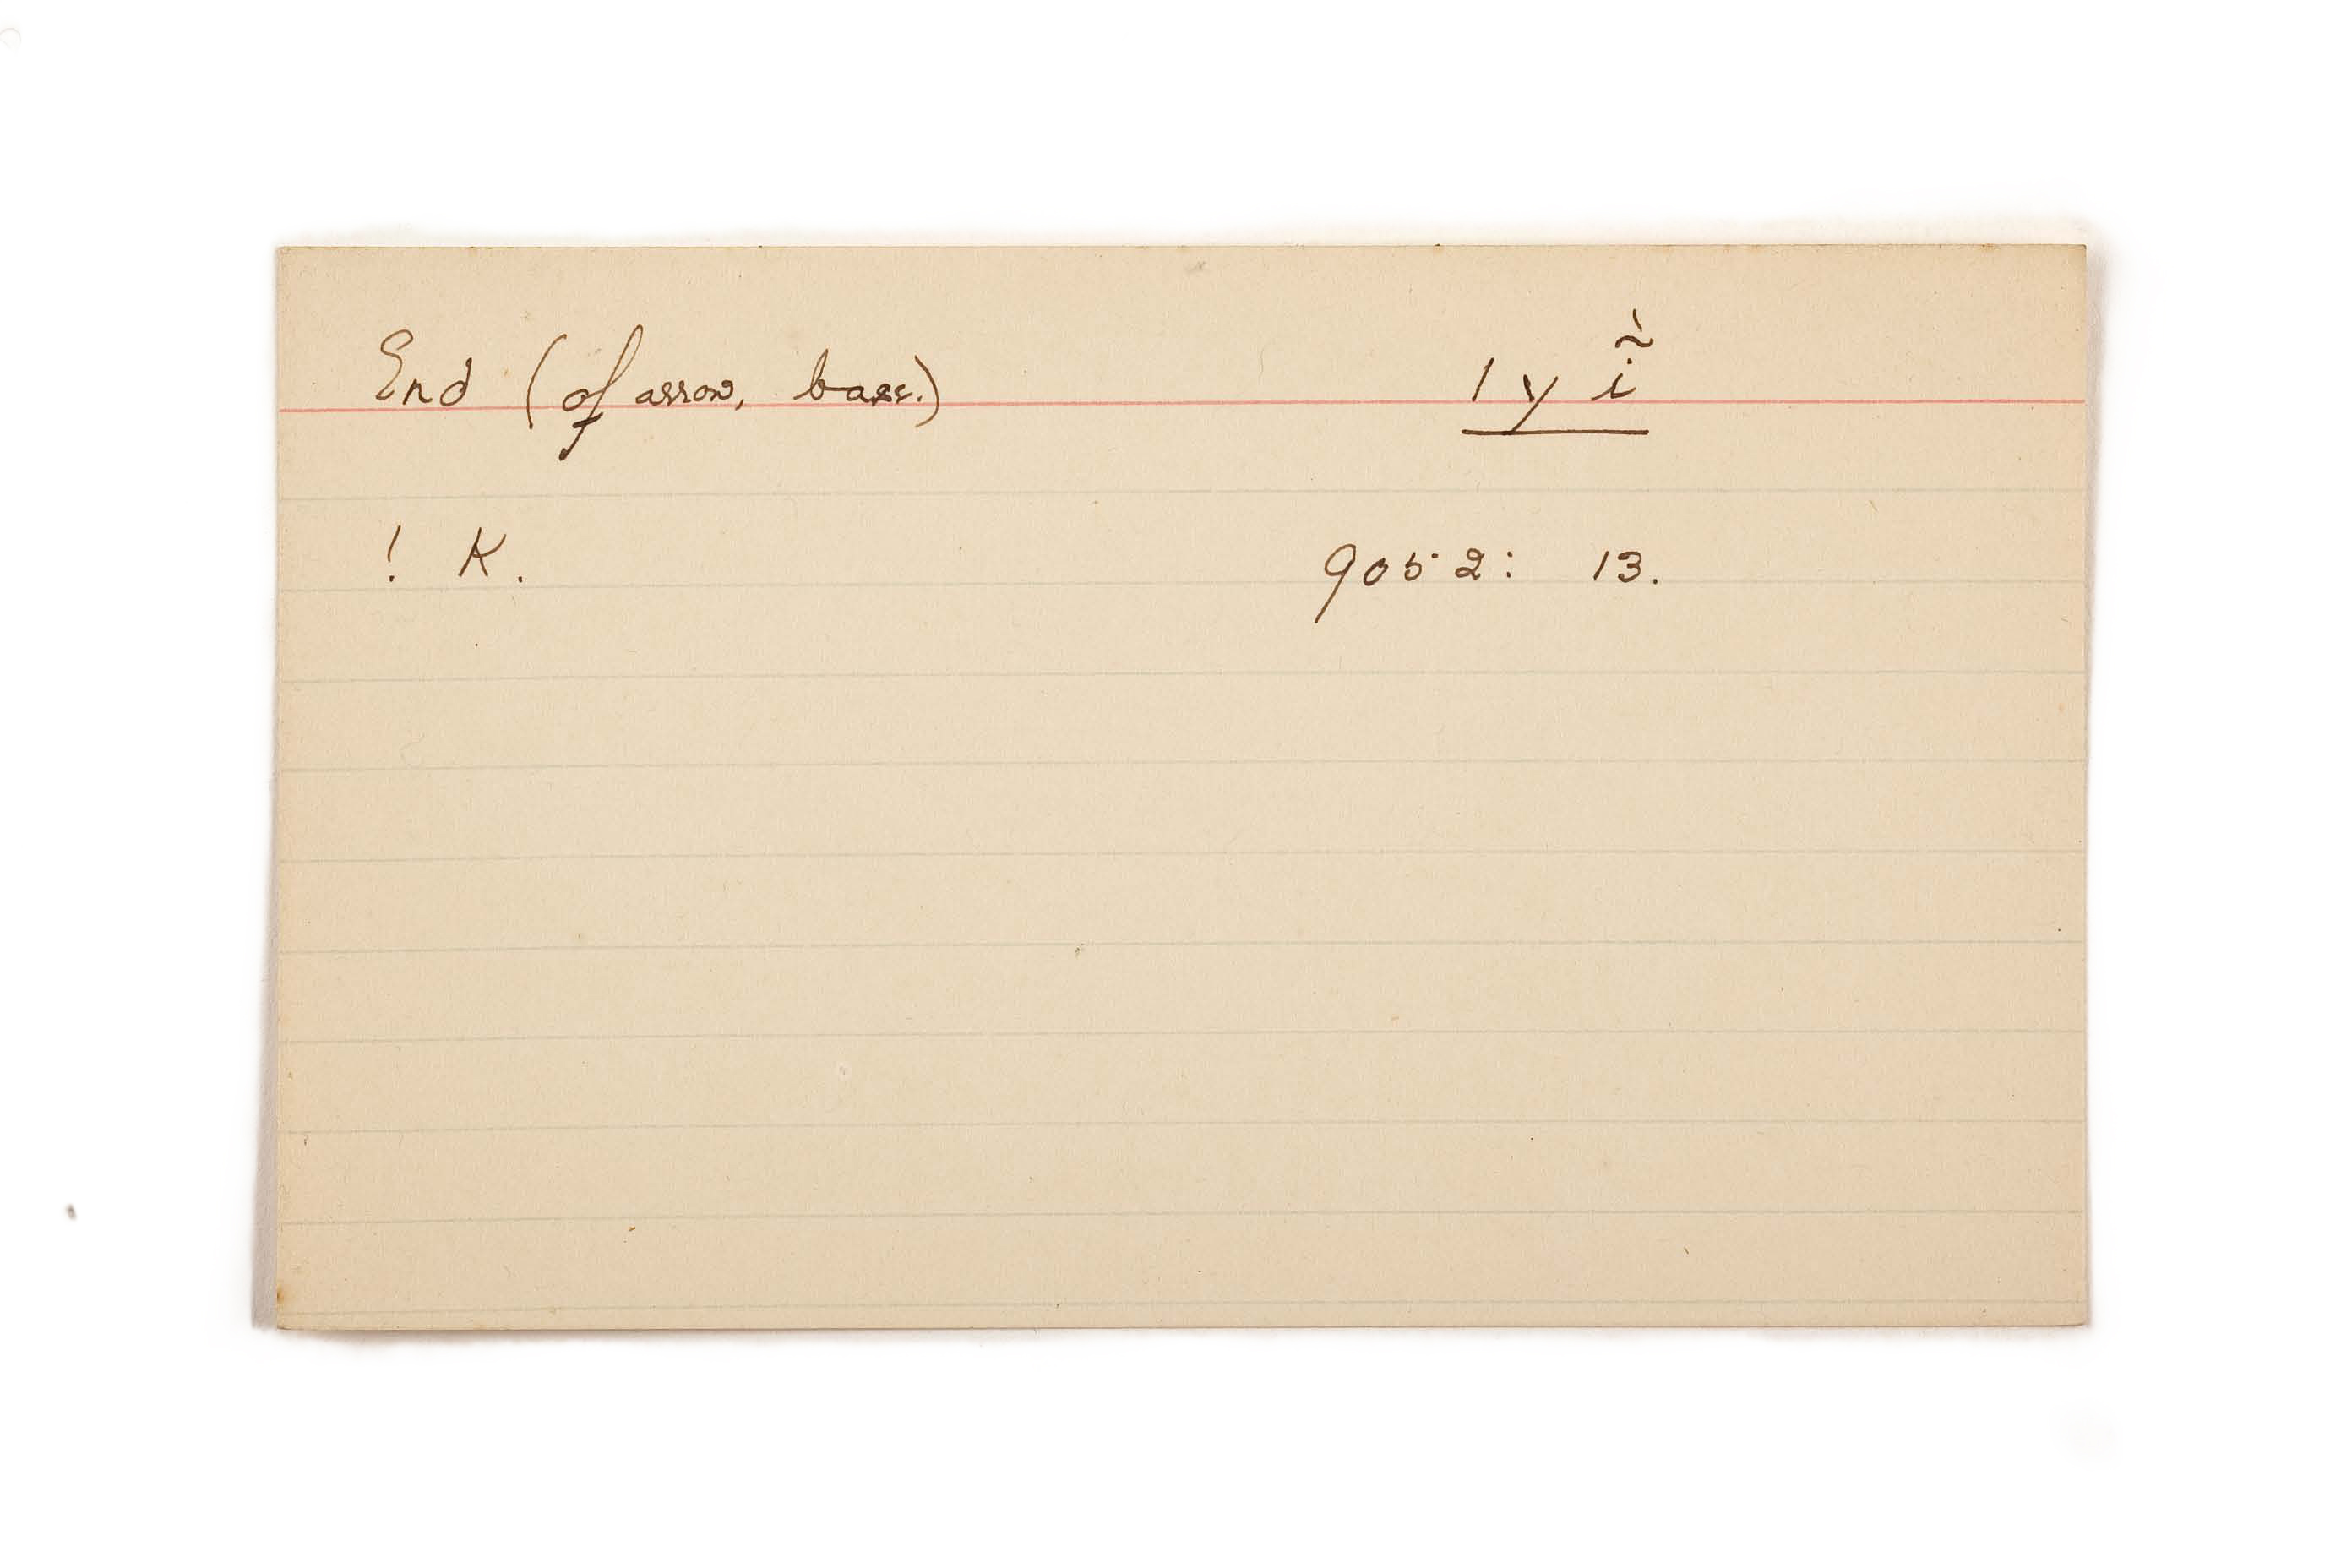 End (of arrow, base.) | y ĩ̀
! K. 9052: 13.